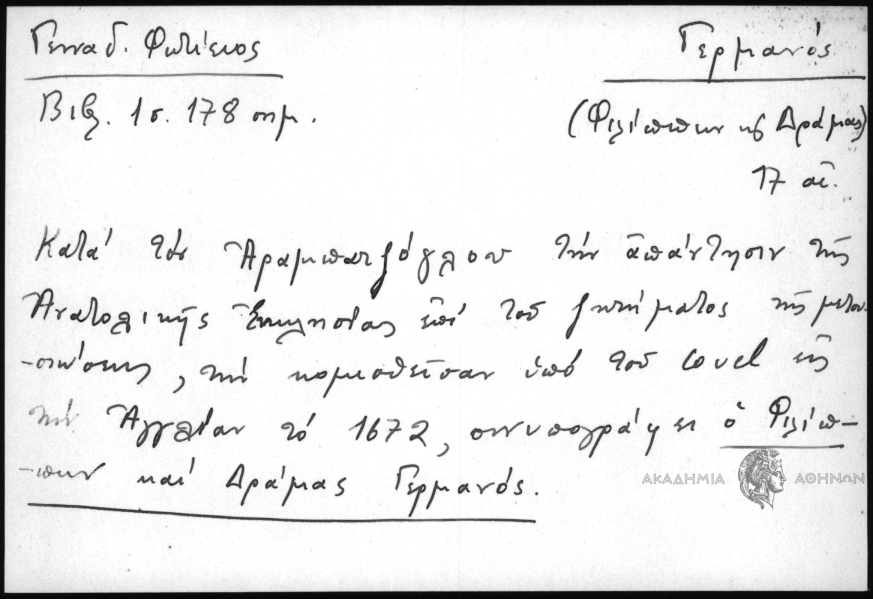 Γενναδ. Φωτίειος
Γερμανός
Βιβλ. 1 σ. 178 σημ.
(Φιλίππων κ Δράμας)
17 αἰ.
Κατά τόν Ἀραμπατζόγλου τήν ἀπάντησιν τῆς
Ἀνατολικῆς Ἐκκλησίας ἐπί τοῦ ζητήματος τῆς μετου-
-σιώσεως, τήν κομισθεῖσαν ὑπό τοῦ Covel εἰς
τήν Ἀγγλίαν τό 1672, συνυπογράφει ὁ Φιλίπ-
-πων καί Δράμας Γερμανός.
ΑΚΑΔΗΜΙΑ ΑΘΗΝΩΝ